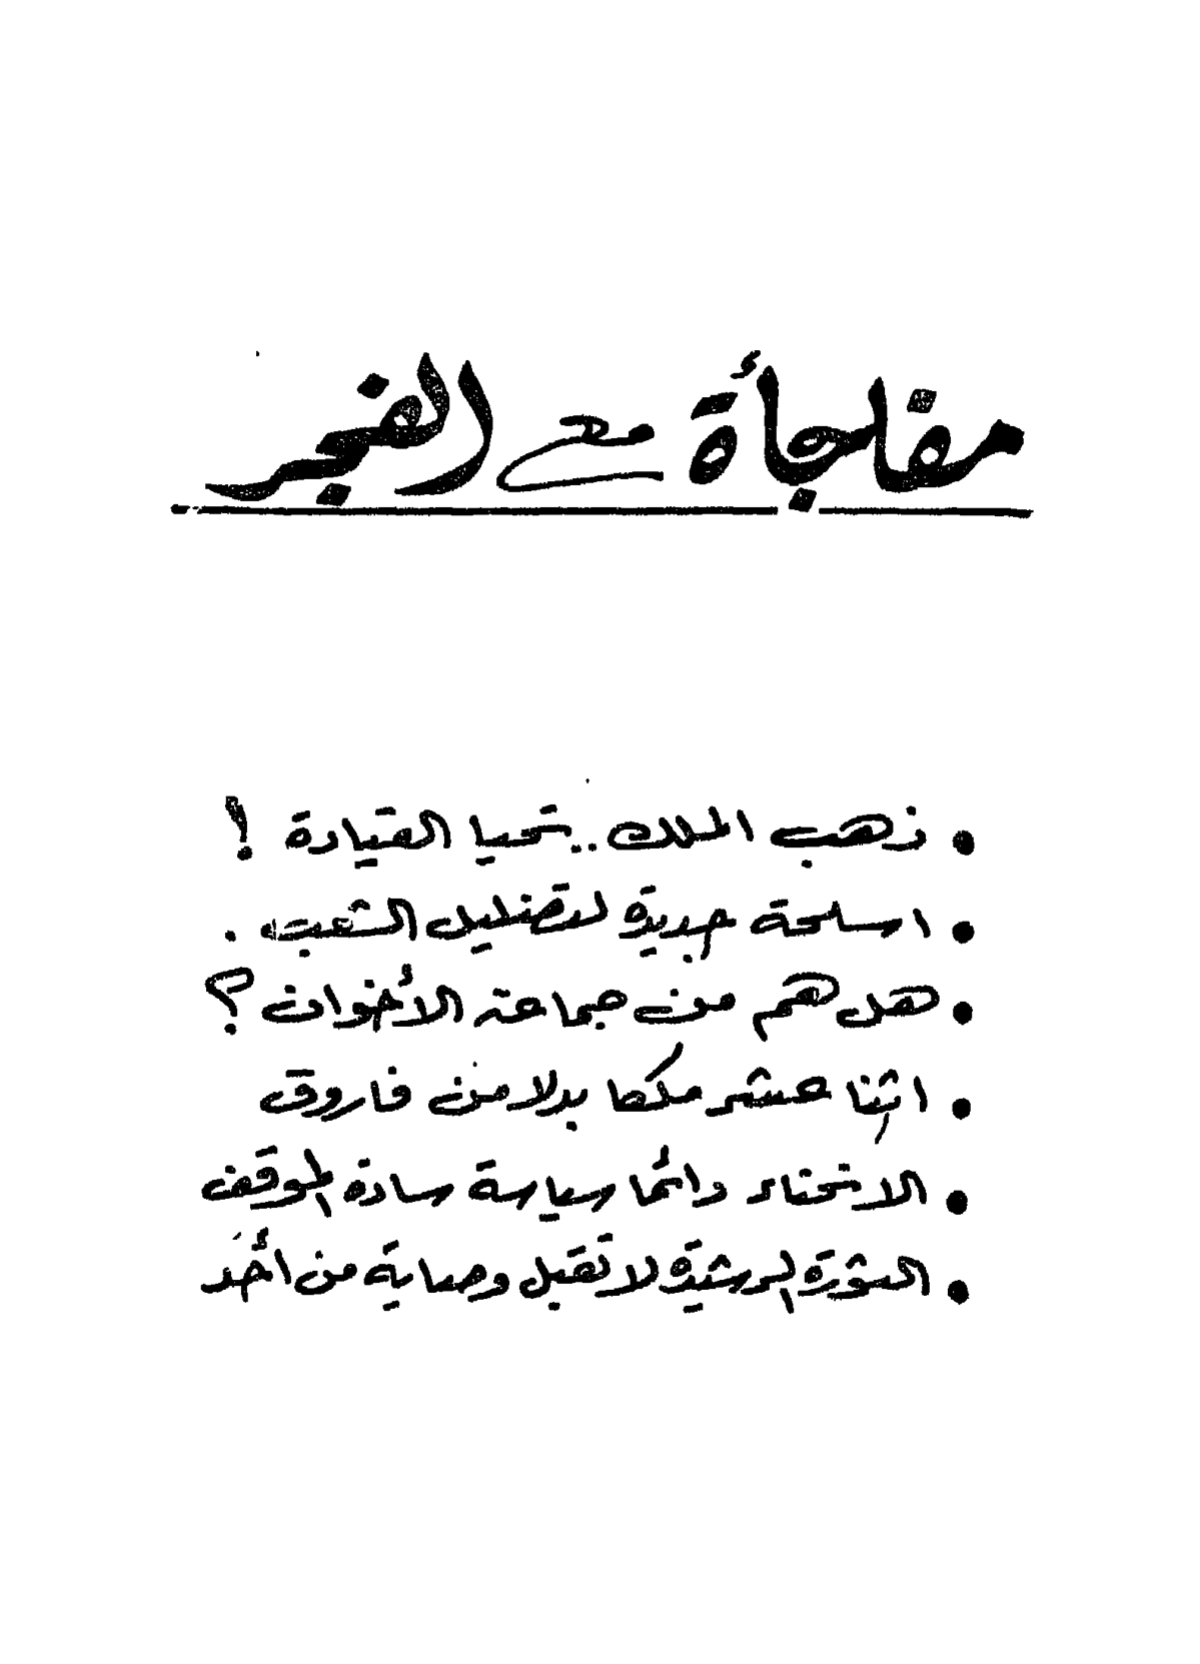 مفاجأة مع الفجر
• ذهب الملك .. تحيا القيادة !
• اسلحة جديدة لتضليل الشعب .
• هل هم من جماعة الأخوان ؟
• اثنا عشر ملكا بدلا من فاروق
• الانحناء دائما سياسة سادة الموقف
• الثورة الرشيدة لا تقبل وصاية من أحد